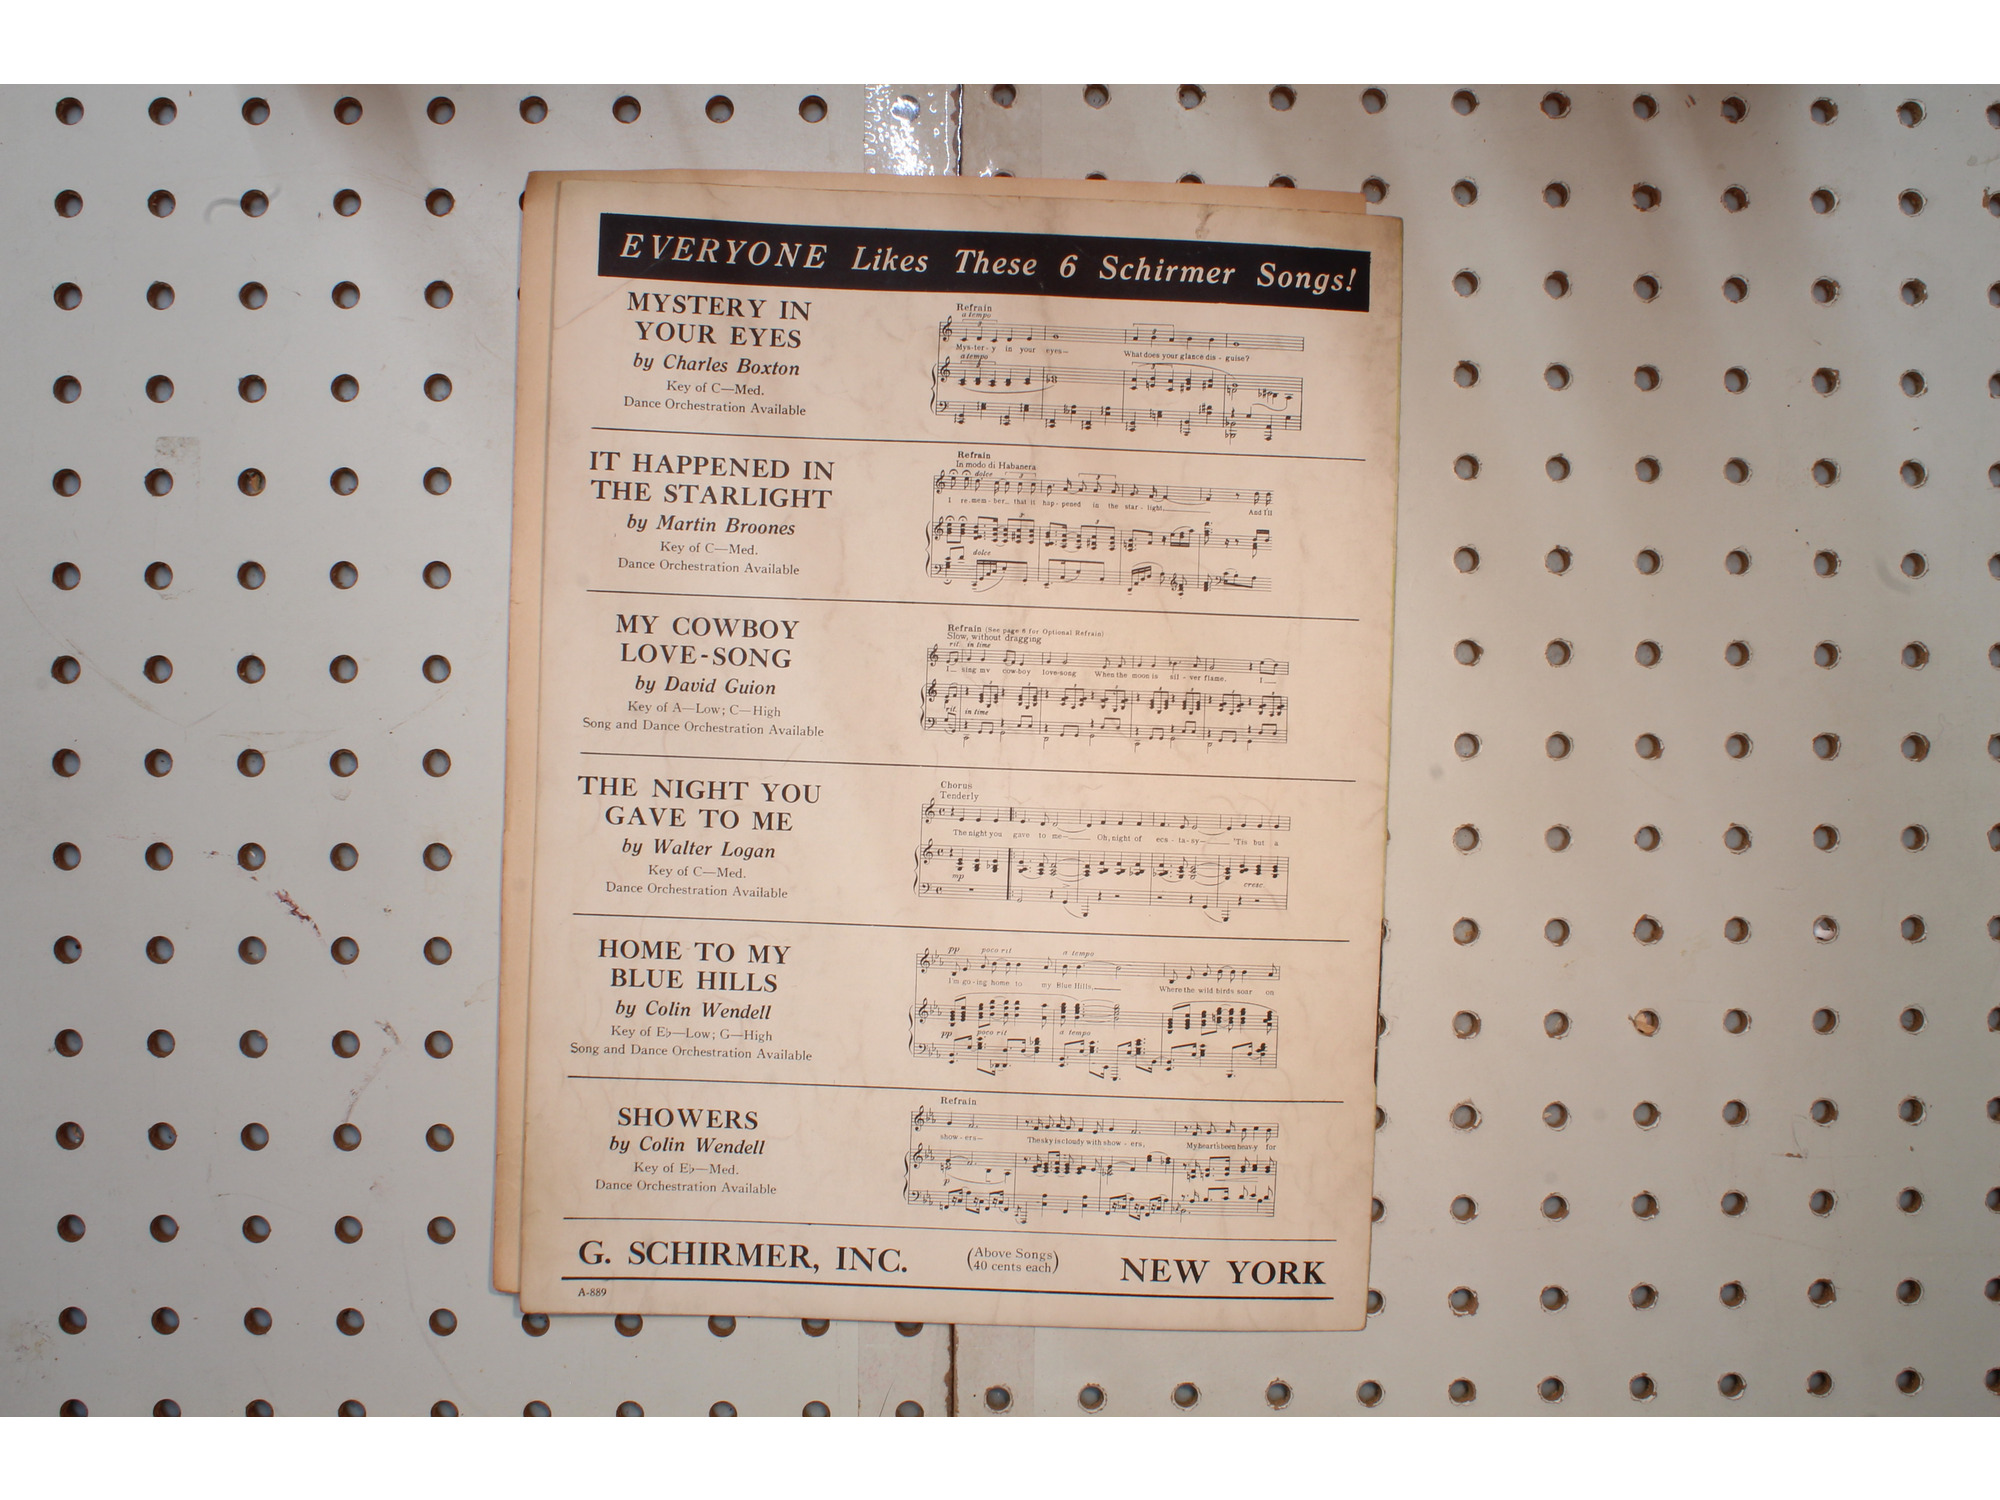 EVERYONE Likes These 6 Schirmer Songs!
MYSTERY IN
YOUR EYES
by Charles Boxton
Key of C—Med.
Dance Orchestration Available
Refrain
a tempo
Mys-ter-y in your eyes— What does your glance dis - guise?
a tempo
IT HAPPENED IN
THE STARLIGHT
by Martin Broones
Key of C—Med.
Dance Orchestration Available
Refrain
In modo di Habanera
dolce
I re-mem-ber_ that it hap-pened in the star-light,____ And I'll
dolce
MY COWBOY
LOVE-SONG
by David Guion
Key of A—Low; C—High
Song and Dance Orchestration Available
Refrain (See page 8 for Optional Refrain)
Slow, without dragging
rit. in time
I__ sing my cow-boy love-song When the moon is sil - ver flame. I__
rit. in time
THE NIGHT YOU
GAVE TO ME
by Walter Logan
Key of C—Med.
Dance Orchestration Available
Chorus
Tenderly
The night you gave to me—___ Oh, night of ecs - ta - sy—___ 'Tis but a
mp
cresc.
HOME TO MY
BLUE HILLS
by Colin Wendell
Key of E♭—Low; G—High
Song and Dance Orchestration Available
pp poco rit a tempo
I'm go-ing home to my Blue Hills,____ Where the wild birds soar on
pp poco rit a tempo
SHOWERS
by Colin Wendell
Key of E♭—Med.
Dance Orchestration Available
Refrain
show-ers— The sky is cloudy with show - ers, My heart's been heav-y for
p
G. SCHIRMER, INC. (Above Songs 40 cents each) NEW YORK
A-889